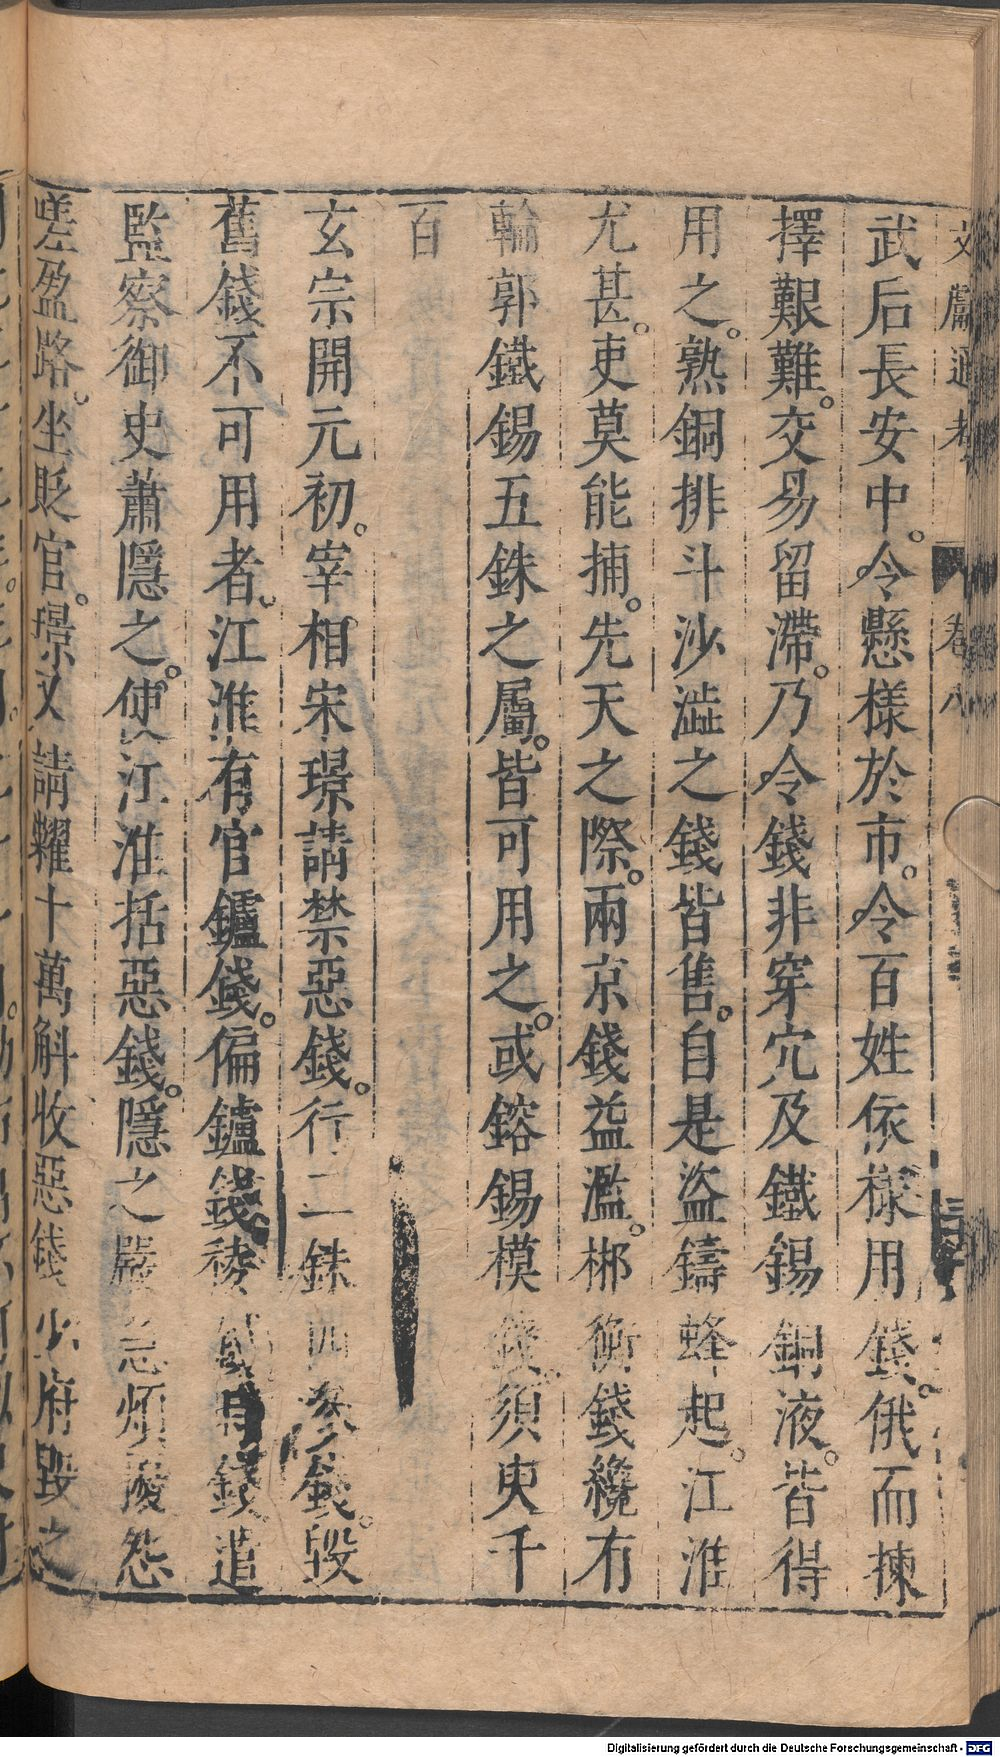 文獻通考 卷八
武后長安中。令懸樣於市。令百姓依樣用錢。俄而揀
擇艱難。交易留滯。乃令錢非穿穴及鐵錫銅液。皆得
用之。熟銅排斗沙澁之錢皆售。自是盜鑄蜂起。江淮
尤甚。吏莫能捕。先天之際。兩京錢益濫。郴衡錢纔有
輪郭鐵錫五銖之屬。皆可用之。或鎔錫模錢須臾千
百
玄宗開元初。宰相宋璟請禁惡錢。行二銖四參錢。毀
舊錢不可用者。江淮有官鑪錢。偏鑪錢稜錢時錢遣
監察御史蕭隱之。使江淮括惡錢。隱之嚴急煩擾怨
嗟盈路。坐貶官。璟又請糶十萬斛收惡錢少府毀之
Digitalisierung gefördert durch die Deutsche Forschungsgemeinschaft - DFG